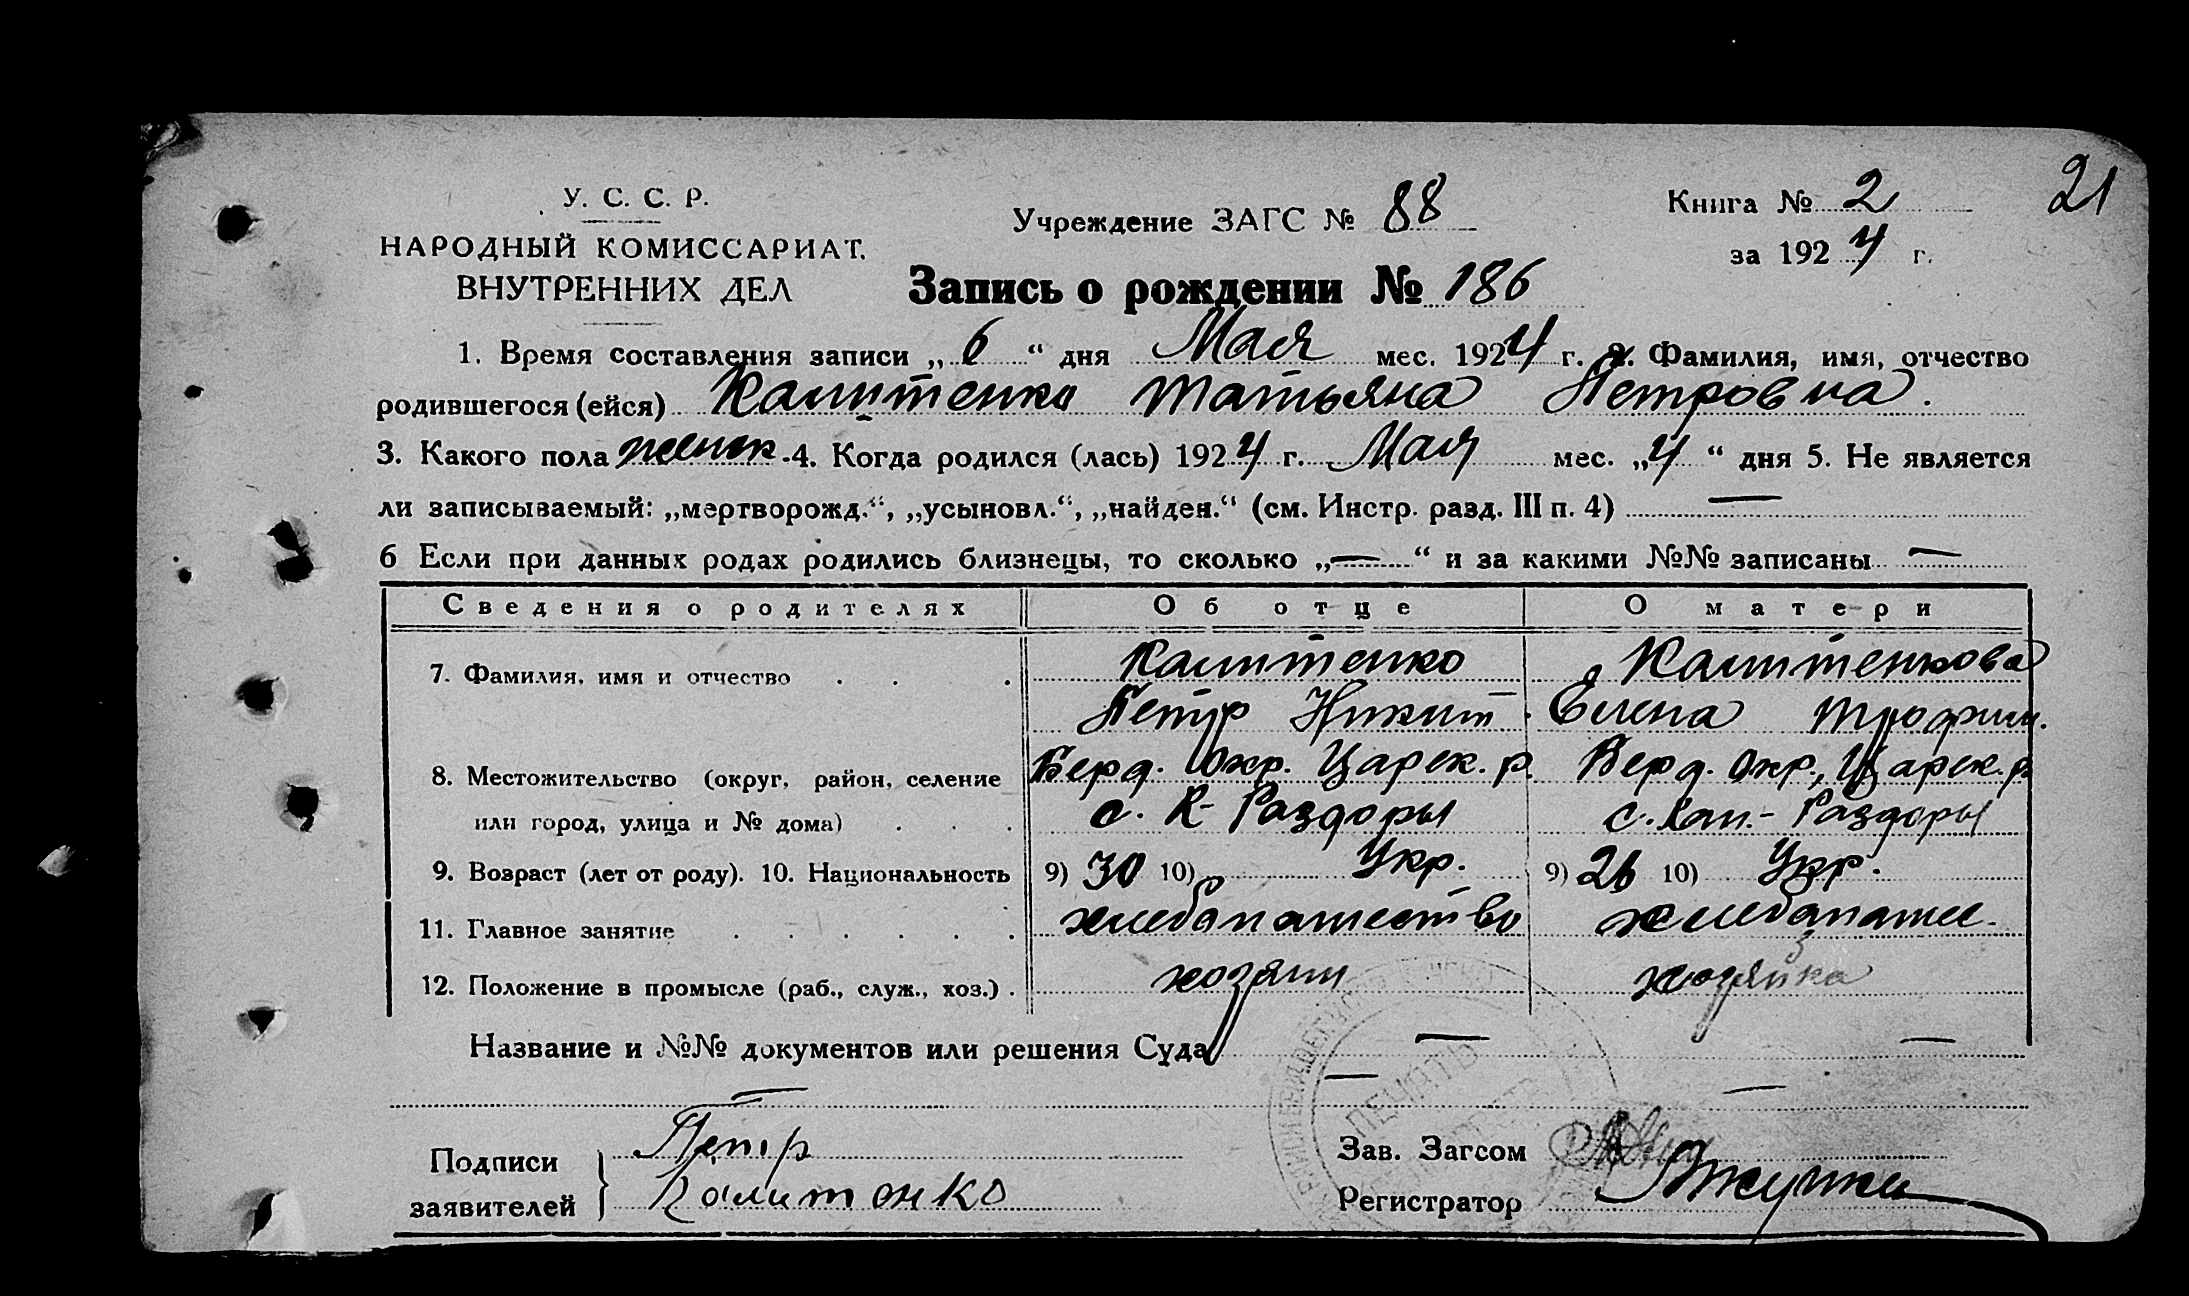 21
У. С. С. Р.
НАРОДНЫЙ КОМИССАРИАТ.
ВНУТРЕННИХ ДЕЛ
Учреждение ЗАГС № 88
Книга № 2
за 1924 г.
Запись о рождении № 186
1. Время составления записи „6“ дня Мая мес. 1924 г. 2. Фамилия, имя, отчество
родившегося (ейся) Калитенко Татьяна Петровна.
3. Какого пола женск. 4. Когда родился (лась) 1924 г. Мая мес. „4“ дня 5. Не является
ли записываемый: „мертворожд.“, „усыновл.“, „найден.“ (см. Инстр. разд. III п. 4) —
6 Если при данных родах родились близнецы, то сколько „—“ и за какими №№ записаны —
Сведения о родителях Об отце О матери
7. Фамилия, имя и отчество . . . Калитенко Калитенкова
Петр Никит. Елена Трофим.
8. Местожительство (округ, район, селение Берд. Окр. Царек. р. Берд. Окр., Царек. р.
или город, улица и № дома) . . . с. К-Раздоры с. Кам.-Раздоры
9. Возраст (лет от роду). 10. Национальность 9) 30 10) Укр. 9) 26 10) Укр.
11. Главное занятие . . . . . . хлебопашество хлебопаше.
12. Положение в промысле (раб., служ., хоз.) . хозяин хозяйка
Название и №№ документов или решения Суда — —
— — —
Подписи
заявителей
Петр
Калитенко
ПЕЧАТЬ
Зав. Загсом
Регистратор